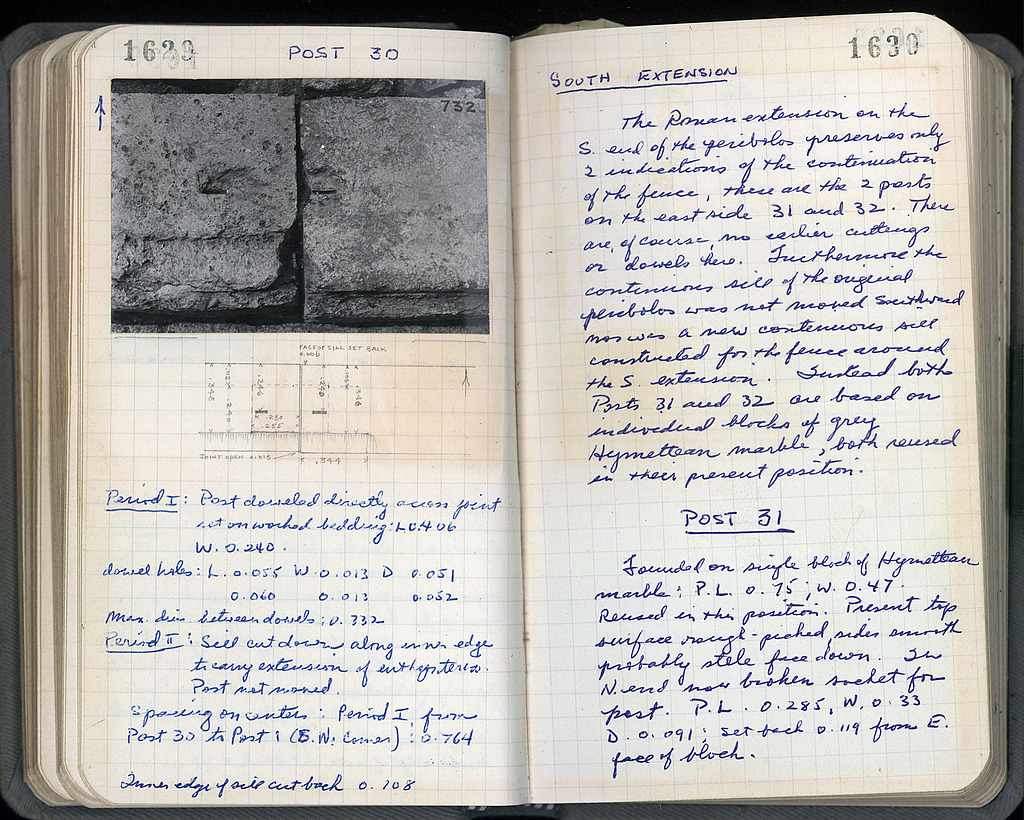 1629
POST 30
732
FACE OF SILL SET BACK
0.006
.343
.240
.246
.240
.346
.230
.255
JOINT OPEN 0.015
.344
Period I: Post doweled directly across joint
set on worked bedding: L 0.406
W. 0.240.
dowel holes: L. 0.055 W. 0.013 D 0.051
0.060 0.013 0.052
Max. dim between dowels: 0.332
Period II: Sill cut down along inner edge
to carry extension of
Post not moved.
Spacing on centers: Period I, from
Post 30 to Post 1 (S.W. Corner): 0.764
Inner edge of sill cut back 0.108
1630
SOUTH EXTENSION
The Roman extension on the
S. end of the peribolos preserves only
2 indications of the continuation
of the fence, these are the 2 posts
on the east side 31 and 32. There
are, of course, no earlier cuttings
or dowels here. Furthermore the
continuous sill of the original
peribolos was not moved southward
nor was a new continuous sill
constructed for the fence around
the S. extension. Instead both
Posts 31 and 32 are based on
individual blocks of grey
Hymettean marble, both reused
in their present position.
POST 31
Founded on single block of Hymettean
marble: P.L. 0.75; W. 0.47
Reused in this position. Present top
surface rough-picked, sides smooth
probably stele face down. In
N. end now broken socket for
post. P.L. 0.285, W. 0.33
D. 0.091; set back 0.119 from E.
face of block.